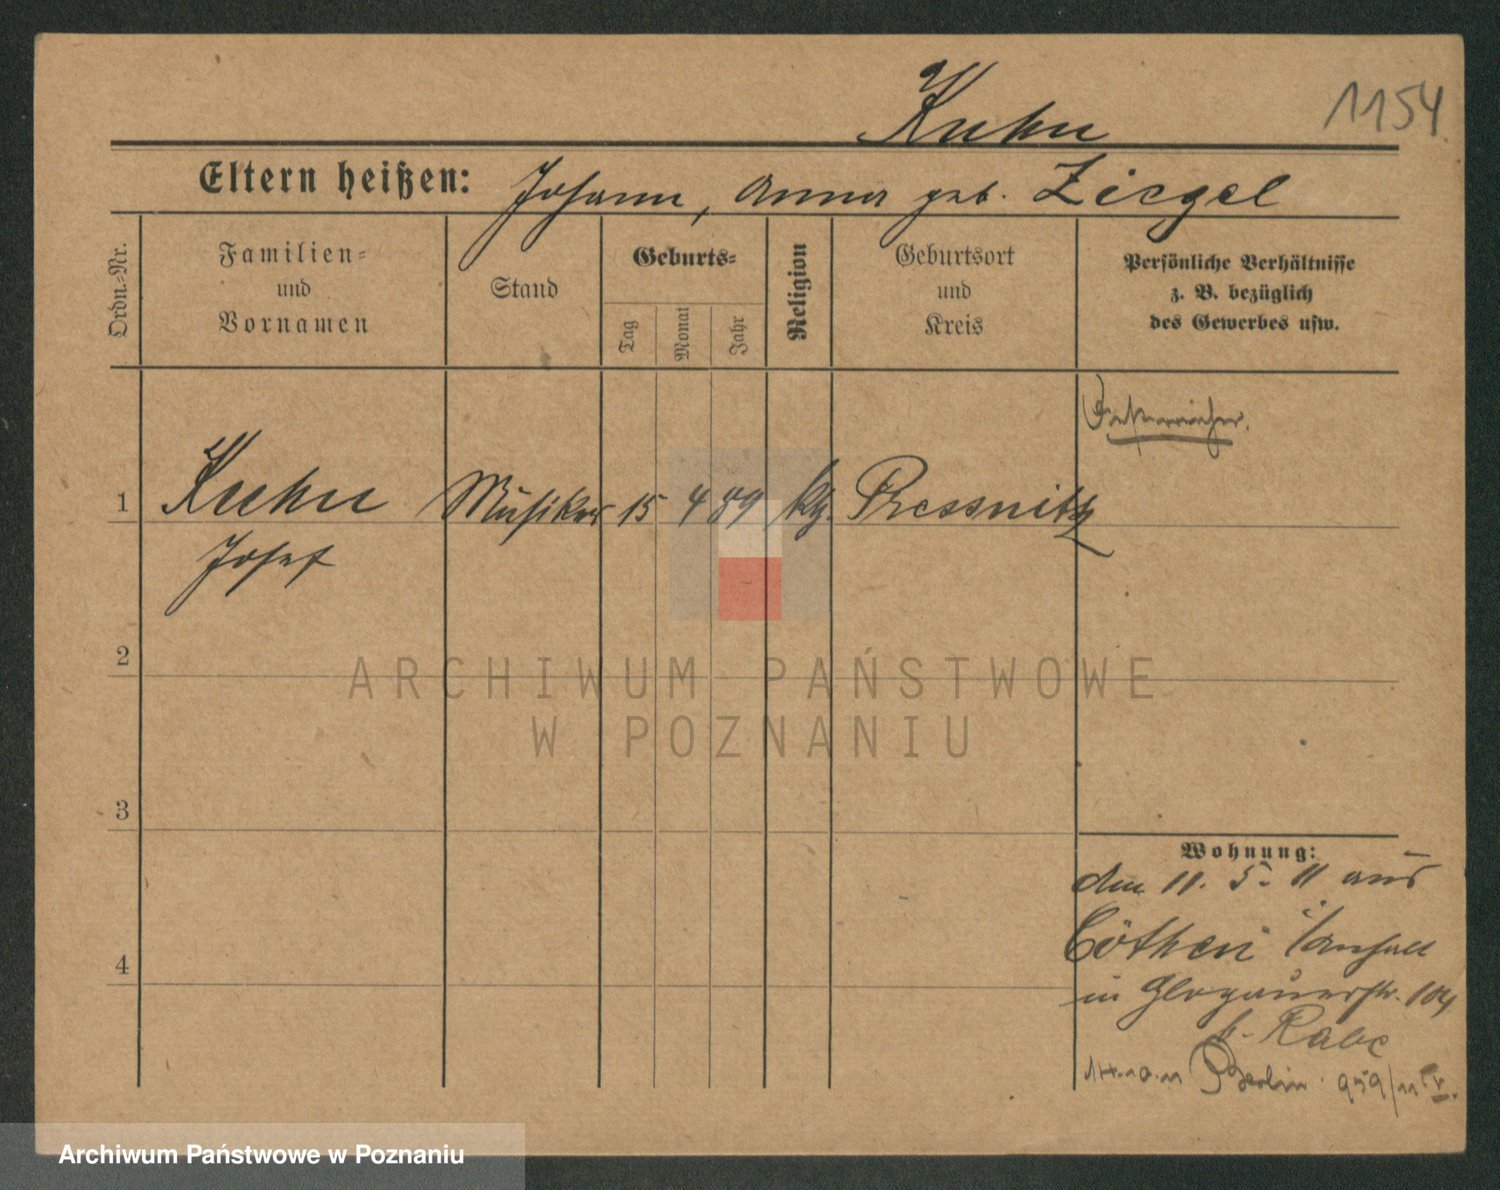 Kuhn
1154
Eltern heißen: Johann, Anna geb. Ziegel
Ordn.=Nr.
Familien=
und
Vornamen
Stand
Geburts=
Tag
Monat
Jahr
Religion
Geburtsort
und
Kreis
Persönliche Verhältnisse
z. B. bezüglich
des Gewerbes usw.
Österreicher.
1 Kuhn Musiker 15 4 89 kth. Pressnitz
Josef
2
3
4
Wohnung:
den 11. 5. 11 aus
Cöthen i/Anhalt
in Glogauerstr. 104
b. Rabe
Berlin 959/11
ARCHIWUM PAŃSTWOWE
W POZNANIU
Archiwum Państwowe w Poznaniu